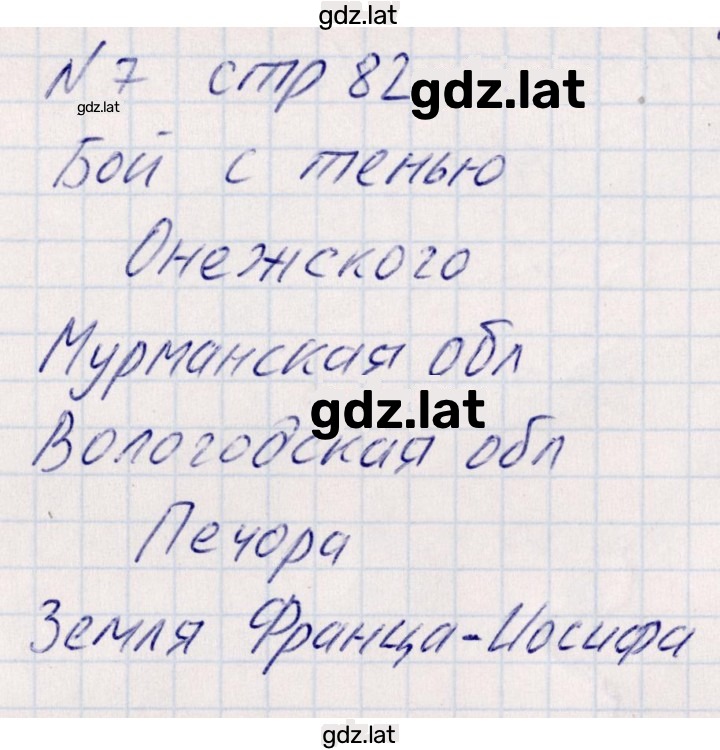 gdz.lat
N 7 стр 82
gdz.lat
gdz.lat
Бой с тенью
Онежского
Мурманская обл
gdz.lat
Вологодская обл
Печора
Земля Франца-Иосифа
gdz.lat